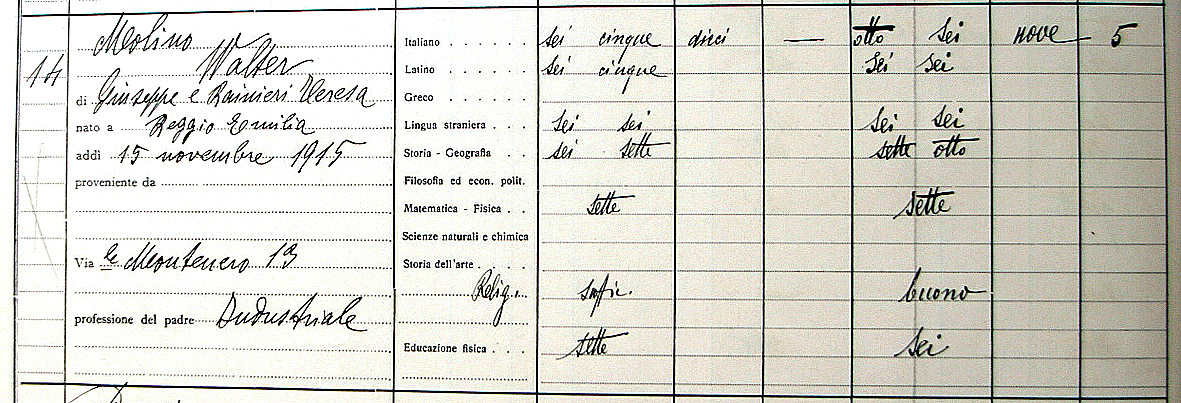 14
Molino
Walter
di Giuseppe e Rainieri Teresa
nato a Reggio Emilia
addì 15 novembre 1915
proveniente da
Via le Montenero 13
professione del padre Industriale
Italiano sei cinque dieci — otto sei nove 5
Latino sei cinque sei sei
Greco
Lingua straniera sei sei sei sei
Storia - Geografia sei sette sette otto
Filosofia ed econ. polit.
Matematica - Fisica sette sette
Scienze naturali e chimica
Storia dell'arte
Relig. suffic. buono
Educazione fisica sette sei